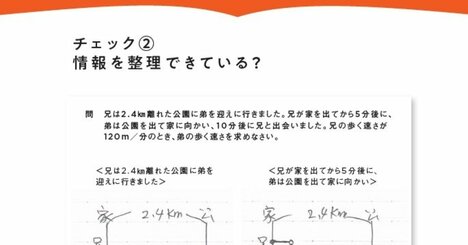 チェック②
情報を整理できている?
問 兄は2.4km離れた公園に弟を迎えに行きました。兄が家を出てから5分後に、
弟は公園を出て家に向かい、10分後に兄と出会いました。兄の歩く速さが
120m／分のとき、弟の歩く速さを求めなさい。
<兄は2.4km離れた公園に弟を
迎えに行きました>
<兄が家を出てから5分後に、
弟は公園を出て家に向かい>
家 2.4Km 公
家 2.4Km 公
兄
兄